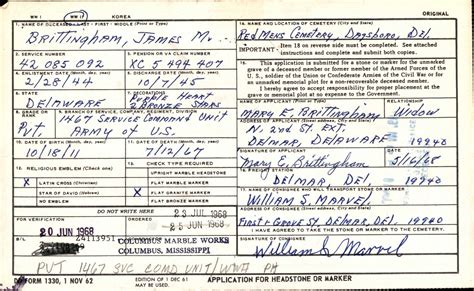 WW I WW II KOREA ORIGINAL
1. NAME OF DECEASED - LAST - FIRST - MIDDLE (Print or Type)
BRITTINGHAM, JAMES M.
2. SERVICE NUMBER
42 085 092
3. PENSION OR VA CLAIM NUMBER
XC 5 494 407
4. ENLISTMENT DATE (Month, day, year)
2/28/44
5. DISCHARGE DATE (Month, day, year)
10/7/45
6. STATE
DELAWARE
7. DECORATIONS
PURPLE HEART
2 BRONZE STARS
8. GRADE
PVT.
9. SERVICE, COMPANY, REGIMENT, DIVISION
1467 SERVICE COMMAND UNIT
ARMY OF U.S.
10. DATE OF BIRTH (Month, day, year)
10/18/11
11. DATE OF DEATH (Month, day, year)
7/12/67
12. RELIGIOUS EMBLEM (Check one)
X LATIN CROSS (Christian)
STAR OF DAVID (Hebrew)
NO EMBLEM
UPRIGHT MARBLE HEADSTONE
FLAT MARBLE MARKER
FLAT GRANITE MARKER
DO NOT WRITE HERE
FOR VERIFICATION
20 JUN 1968
23 JUL 1968
25 JUN 1968
24113951
COLUMBUS MARBLE WORKS
COLUMBUS, MISSISSIPPI
PVT 1467 SVC COMD UNIT/WWII PH
14. NAME AND LOCATION OF CEMETERY (City and State)
RED MENS CEMETERY, DAGSBORO, DEL.
IMPORTANT - Item 18 on reverse side must be completed. See attached instructions and complete and submit both copies.
This application is submitted for a stone or marker for the unmarked grave of a deceased member or former member of the Armed Forces of the U.S., soldier of the Union or Confederate Armies of the Civil War or for an unmarked memorial plot for a non-recoverable deceased member.
I hereby agree to accept responsibility for proper placement at the grave or memorial plot at no expense to the Government.
RELATIONSHIP
MARY E. BRITTINGHAM WIDOW
N. 2nd ST. EXT.
DELMAR, DELAWARE 19940
SIGNATURE OF APPLICANT DATE
Mary E. Brittingham 5/16/68
FREIGHT STATION
DELMAR, DEL.
NAME OF CONSIGNEE WHO WILL TRANSPORT STONE OR MARKER
WILLIAM S. MARVEL
FIRST & GROVE ST. DELMAR, DEL. 19940
William S. Marvel
DA FORM 1330, 1 NOV 62
APPLICATION FOR HEADSTONE OR MARKER